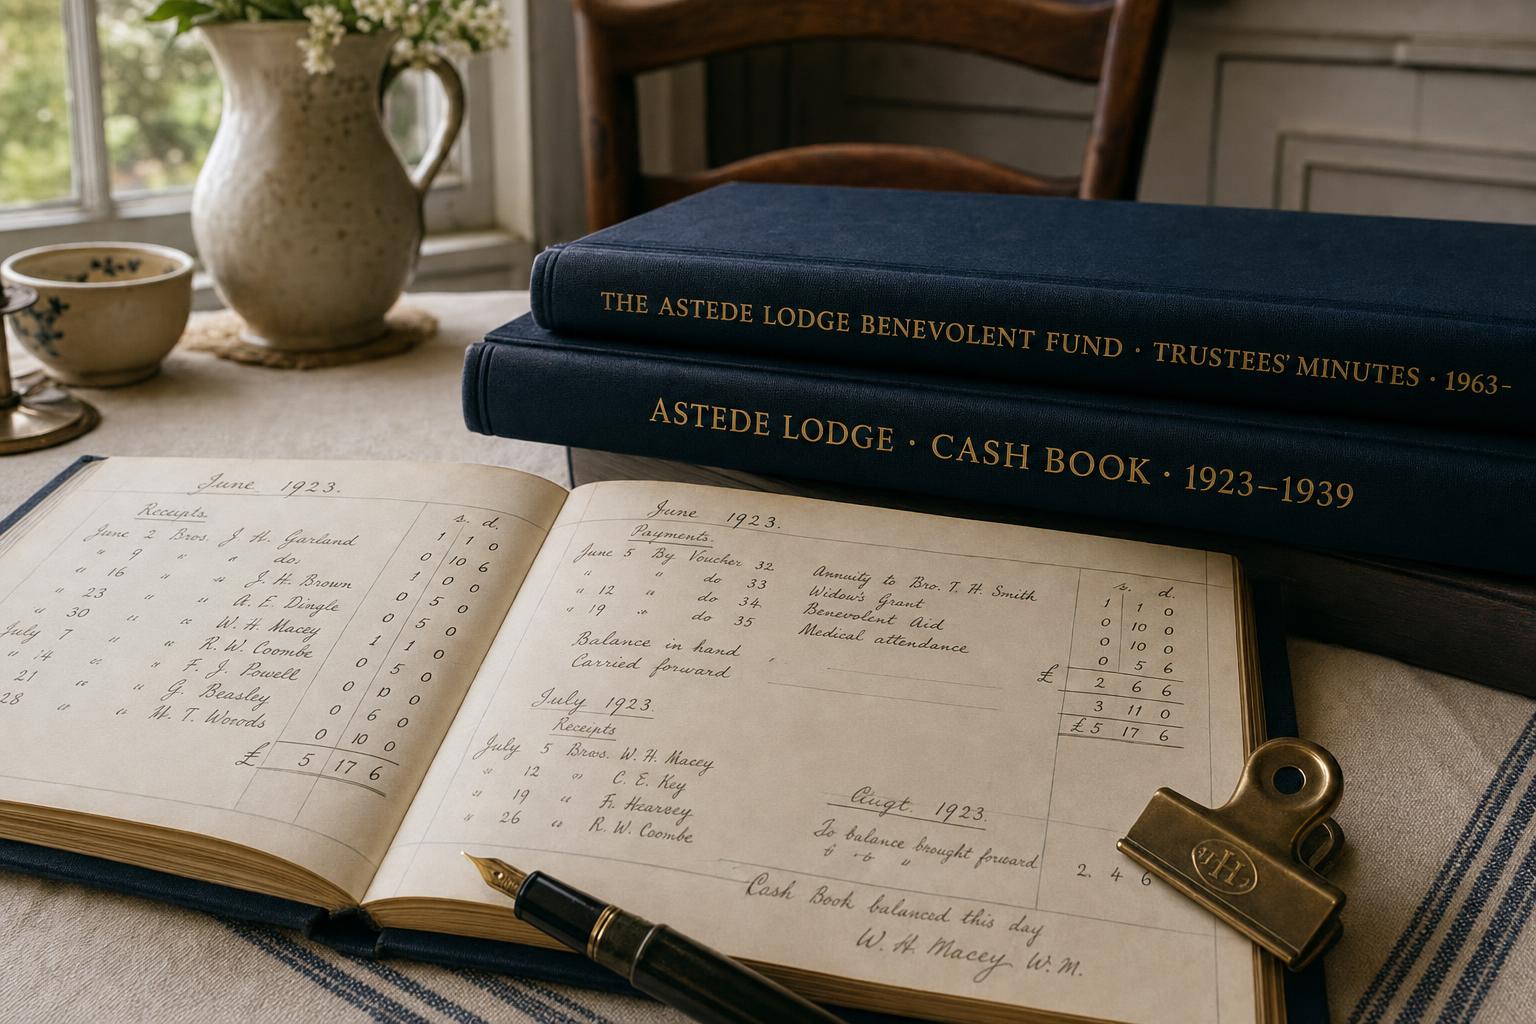 THE ASTEDE LODGE BENEVOLENT FUND · TRUSTEES' MINUTES · 1963-
ASTEDE LODGE · CASH BOOK · 1923–1939
June 1923.
Receipts
s. d.
June 2 Bros. J. H. Garland 1 1 0
" 9 " " do: 0 10 6
" 16 " " J. H. Brown 1 0 0
" 23 " " A. E. Dingle 0 5 0
" 30 " " W. H. Macey 0 5 0
July 7 " " R. W. Coombe 1 1 0
" 14 " " F. J. Powell 0 5 0
21 " " G. Beasley 0 10 0
28 " " H. T. Woods 0 6 0
0 10 0
£ 5 17 6
June 1923.
Payments.
s. d.
June 5 By Voucher 32 Annuity to Bro. T. H. Smith 1 1 0
" " do 33 Widow's Grant 0 10 0
" 12 " do 34 Benevolent Aid 0 10 0
" 19 " do 35 Medical attendance 0 5 6
£ 2 6 6
Balance in hand 3 11 0
Carried forward £5 17 6
July 1923.
Receipts
July 5 Bros. W. H. Macey
" 12 " C. E. Key
" 19 " Fr. Hearsey
" 26 " R. W. Coombe
Augt. 1923.
To balance brought forward
2. 4 6
Cash Book balanced this day
W. H. Macey W. M.